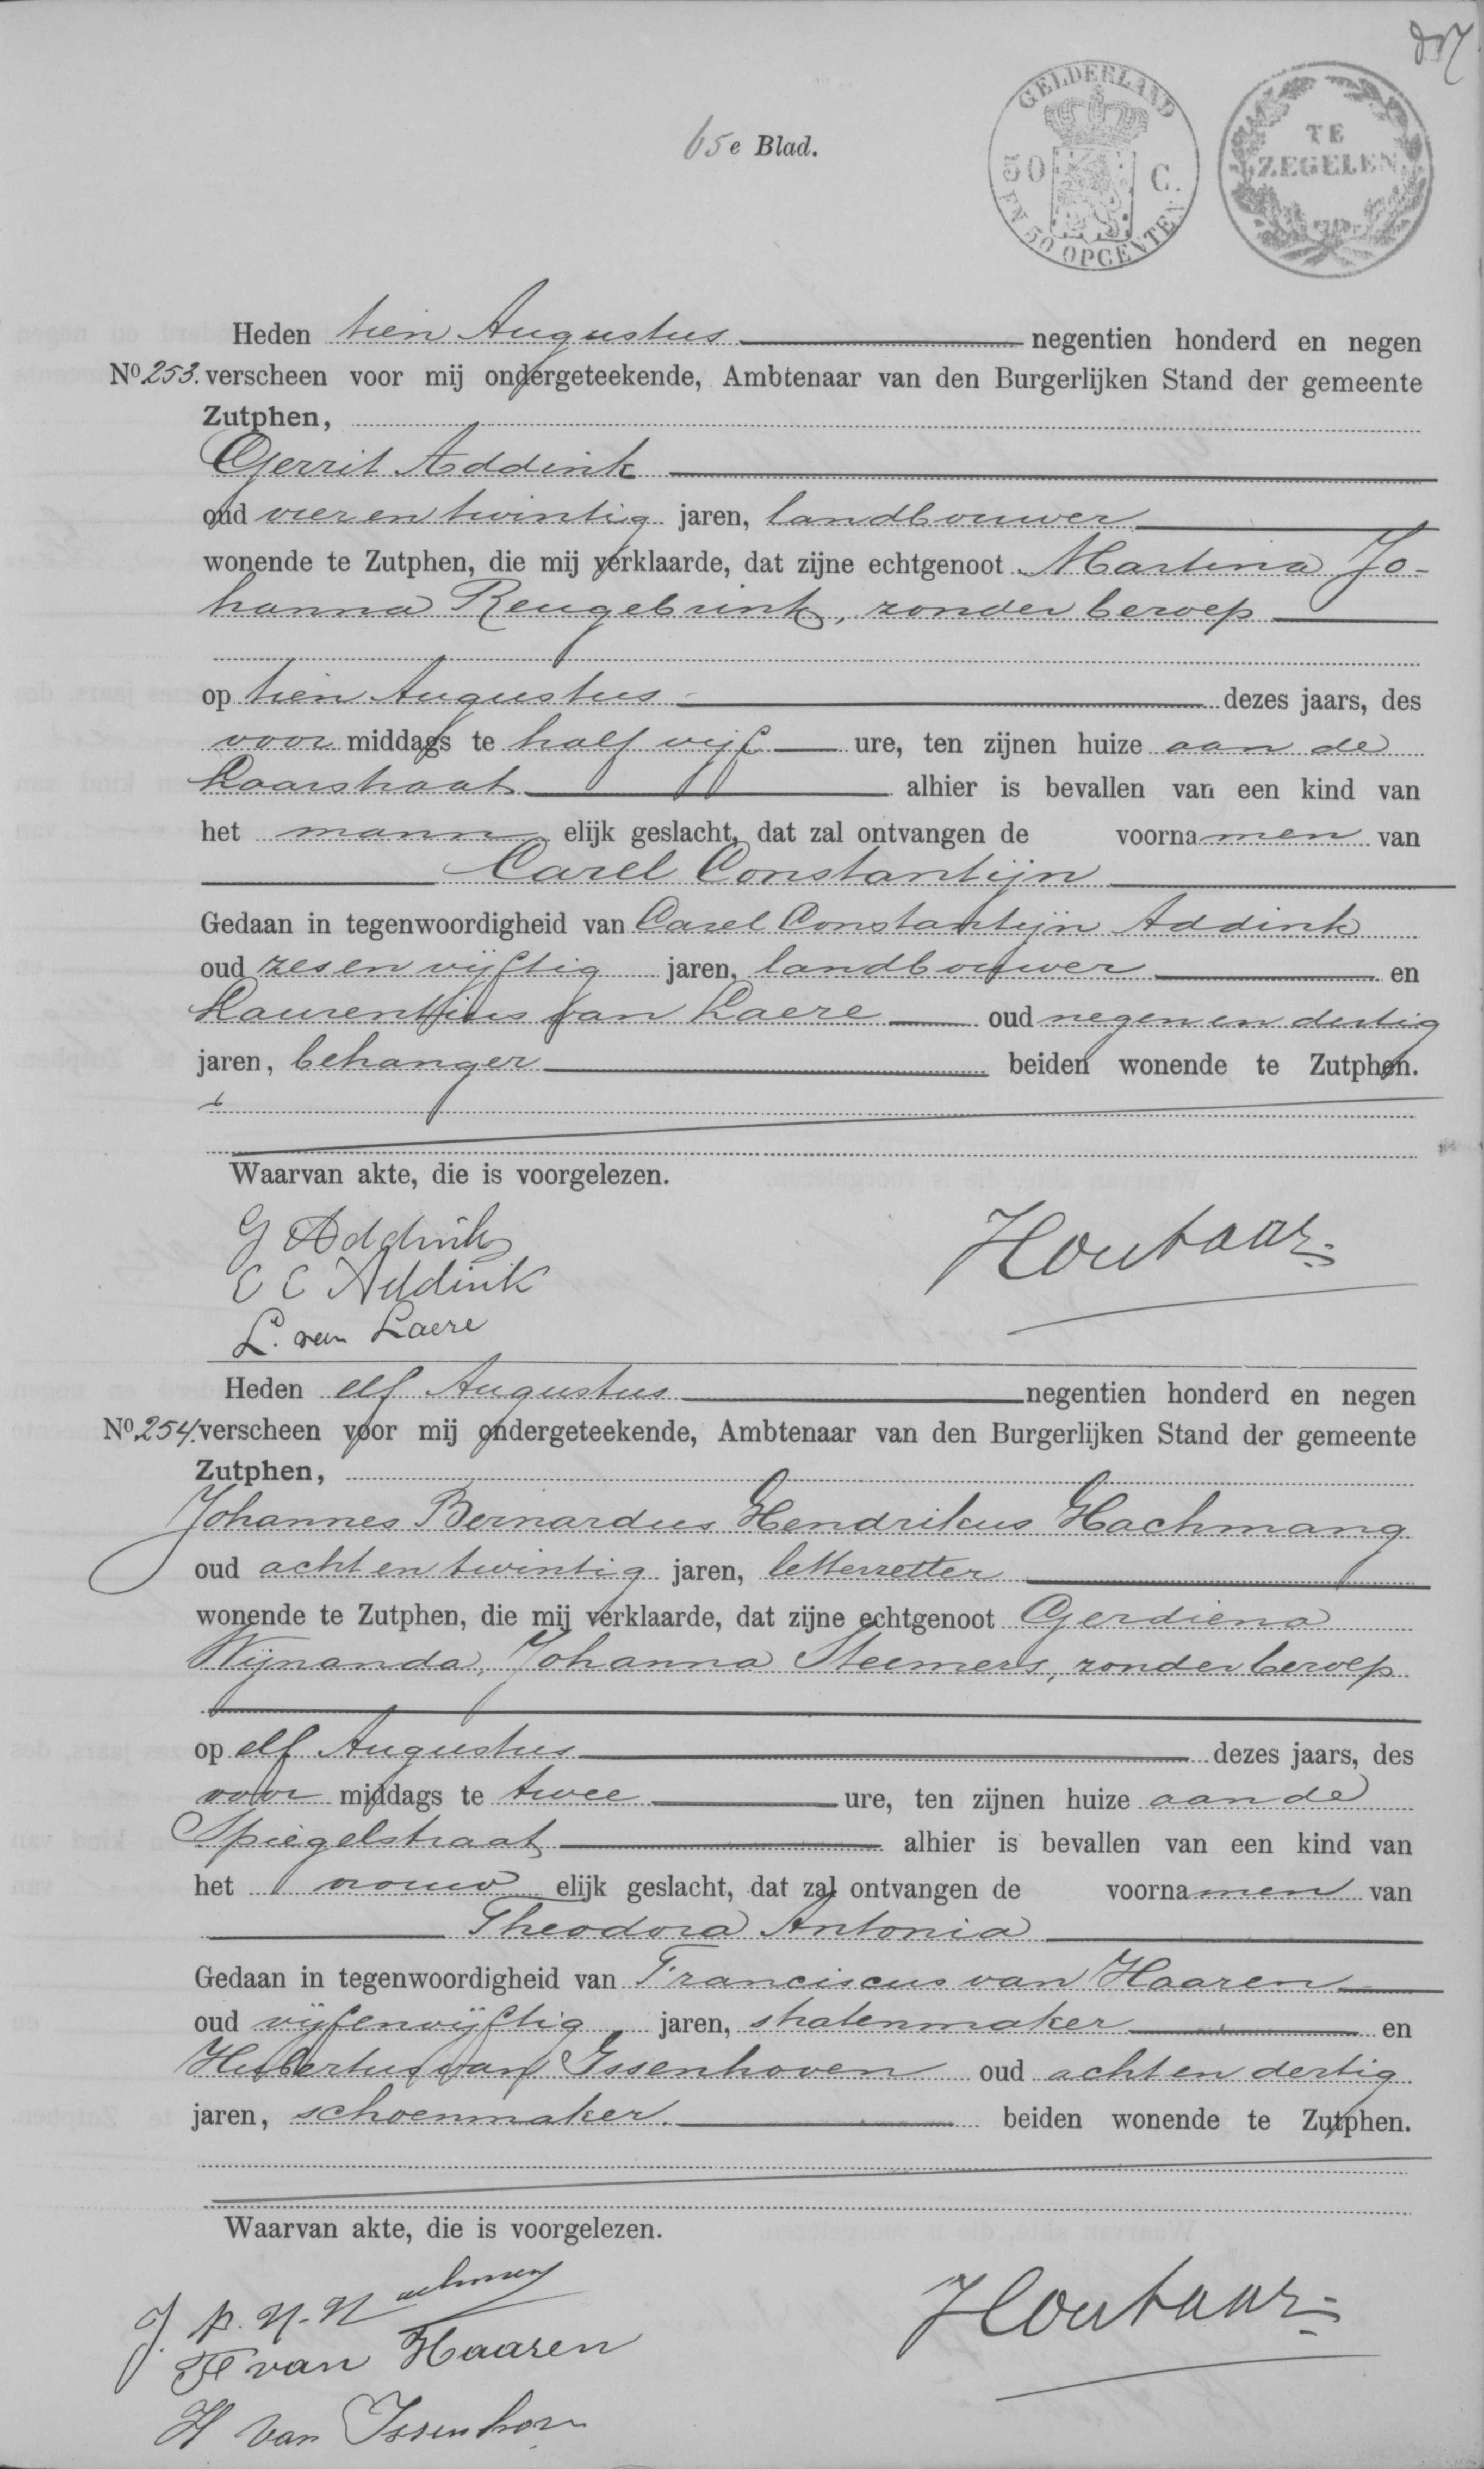 65e Blad.
GELDERLAND
50 C.
EN 50 OPCENTEN
TE
ZEGELEN
Heden tien Augustus negentien honderd en negen
No 253. verscheen voor mij ondergeteekende, Ambtenaar van den Burgerlijken Stand der gemeente
Zutphen,
Gerrit Addink
oud vier en twintig jaren, landbouwer
wonende te Zutphen, die mij verklaarde, dat zijne echtgenoot Martina Jo-
hanna Reugebrink, zonder beroep
op tien Augustus dezes jaars, des
voor middags te half vijf ure, ten zijnen huize aan de
Laarstraat alhier is bevallen van een kind van
het mann elijk geslacht, dat zal ontvangen de voornamen van
Carel Constantijn
Gedaan in tegenwoordigheid van Carel Constantijn Addink
oud zes en vijftig jaren, landbouwer en
Laurentius van Laere oud negen en dertig
jaren, behanger beiden wonende te Zutphen.
Waarvan akte, die is voorgelezen.
G Addink
C C Addink
L. van Laere
Houtaar
Heden elf Augustus negentien honderd en negen
No 254. verscheen voor mij ondergeteekende, Ambtenaar van den Burgerlijken Stand der gemeente
Zutphen,
Johannes Bernardus Hendrikus Hachmang
oud acht en twintig jaren, letterzetter
wonende te Zutphen, die mij verklaarde, dat zijne echtgenoot Gerdiena
Wijnanda, Johanna Steemers, zonder beroep
op elf Augustus dezes jaars, des
voor middags te twee ure, ten zijnen huize aan de
Spiegelstraat alhier is bevallen van een kind van
het vrouw elijk geslacht, dat zal ontvangen de voornamen van
Theodora Antonia
Gedaan in tegenwoordigheid van Franciscus van Haaren
oud vijf en vijftig jaren, stratenmaker en
Hubertus van Issenhoven oud acht en dertig
jaren, schoenmaker. beiden wonende te Zutphen.
Waarvan akte, die is voorgelezen.
F van Haaren
H van Issenhoven
Houtaar